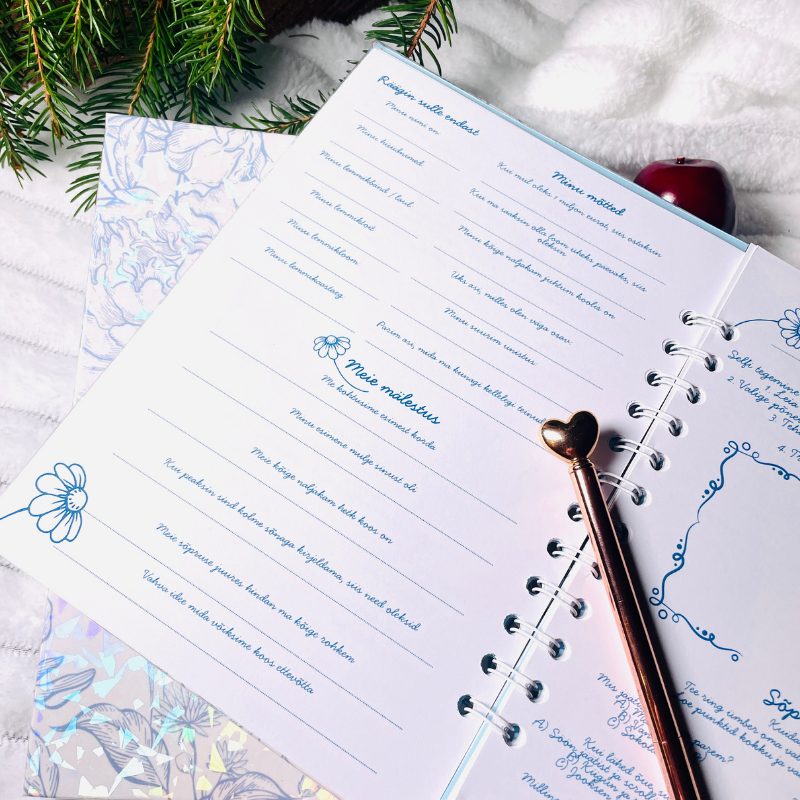 Räägin sulle endast
Minu nimi on
Minu hüüdnimed
Minu lemmikbänd / laul
Minu lemmiktoit
Minu lemmikloom
Minu lemmikaastaaeg
Minu mõtted
Kui mul oleks 1 miljon eurot, siis ostaksin
Kui ma saaksin olla loom üheks päevaks, siis
oleksin
Minu kõige naljakam juhtum koolis on
Üks asi, milles olen väga osav
Minu suurim unistus
Parim asi, mida ma kunagi kellelegi teinud
Meie mälestus
Me kohtusime esimest korda
Minu esimene mulje sinust oli
Meie kõige naljakam hetk koos on
Kui peaksin sind kolme sõnaga kirjeldama, siis need oleksid
Meie sõpruse juures hindan ma kõige rohkem
Vahva idee mida võiksime koos ettevõtta
Selfi tegemine
1. Leia
2. Valige põne
3. Teh
4. T
Sõp
Tee ring ümber oma va
punktid kokku ja va
Mis
A)
B)
C)
Kui lähed õue, su
A) Soojaatist ja scroll
B) Kugun ja
C) Jooksen